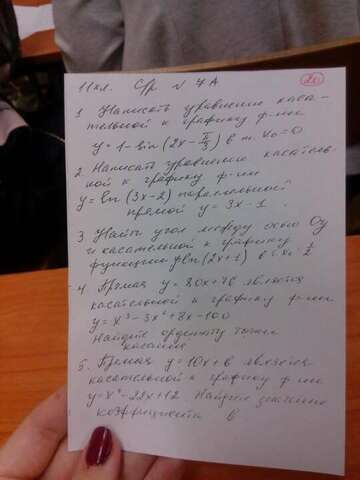 11 кл. С/р № 7А
2
1 Написать уравнение каса-
тельной к графику ф-ии
y = 1 - sin (2x - π/3) в т. x₀ = 0
2. Написать уравнение касатель-
ной к графику ф-ии
y = ln (3x - 2) параллельной
прямой y = 3x - 1
3 Найти угол между осью Oy
и касательной к графику
функции y ln (2x + 1) в x₀ 1/2
4. Прямая y = 80x + является
касательной к графику ф-ии
y = x³ - 3x² + 8x - 100
Найдите ординату точки
касания
5. Прямая y = 10x + в является
касательной к графику ф-ии
y = x³ - 28x + 12 Найдите значение
коэффициента в